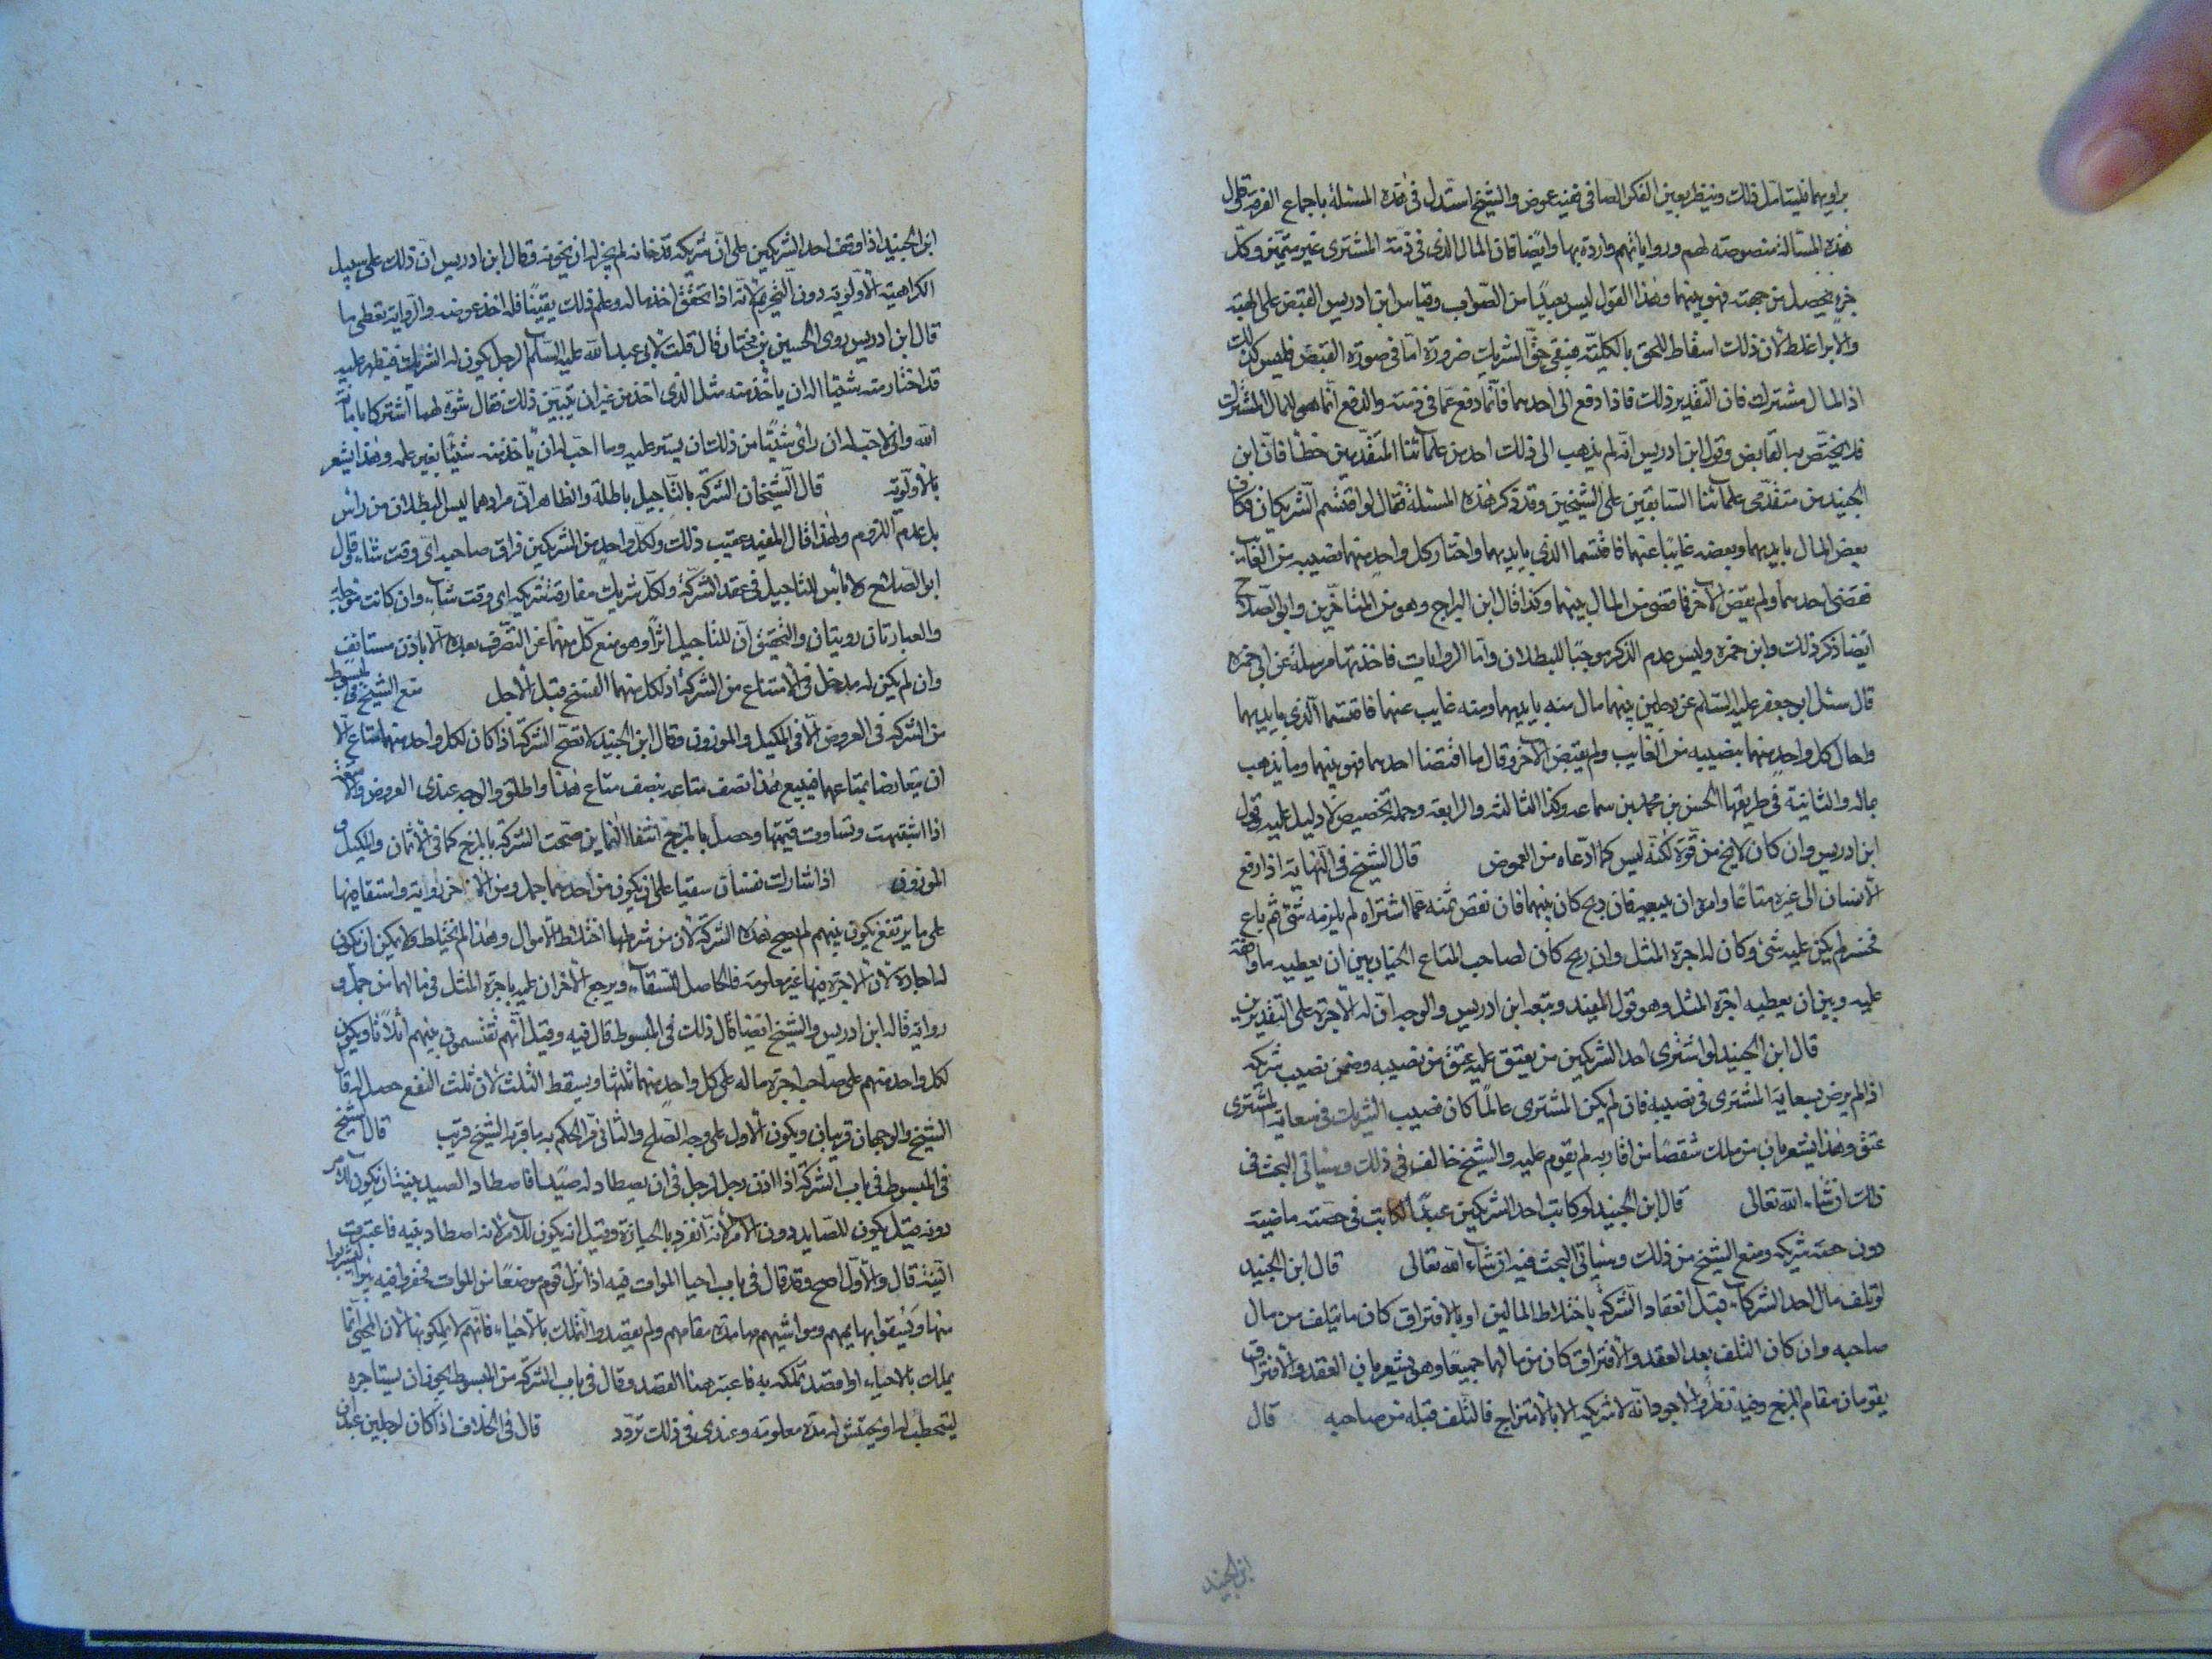 براويهما فليتامل ذلك وينظر بعين الفكر الصافى ففيه غموض والشيخ استدل فى هذه المسئلة باجماع الفرقة قال
هذه المسالة منصوصته لهم ورواياتهم واردة بها وايضا فان المال الذى فى ذمة المشترى غير متميز وكل
جزء يحصل من جهته فهو بينهما وهذا القول ليس بعيدا من الصواب وقياس ابن ادريس القبض على الهبة
والابرا غلط لان ذلك اسقاط للحق بالكلية فيبقى حق الشريك ضرورة اما فى صورة القبض فليس كذلك
اذ المال مشترك فان التقدير ذلك فاذا دفع الى احدهما فانما دفع عما فى ذمته والدفع انما هو للمال المشترك
فلا يختص به القابض وقول ابن ادريس انه لم يذهب الى ذلك احد من علمائنا المتقدمين خطأ فان ابن
الجنيد من متقدمى علمائنا السابقين على الشيخين وقد ذكر هذه المسئلة فقال لو اقتسم الشريكان وكان
بعض المال بايديهما وبعضه غايبا عنهما فاقتسما الذى بايديهما واختار كل واحد منهما نصيبه من الغايب
فقضى احدهما ولم يقض الاخر فما قضى من المال بينهما وكذا قال ابن البراج وهو من المتاخرين وابو الصلاح
ايضا ذكر ذلك وابن حمزه وليس عدم الذكر موجبا للبطلان واما الروايات فاخذتها مرسلة عن ابى حمزه
قال سئل ابو جعفر عليه السلام عن رجلين بينهما مال منه بايديهما ومنه غايب عنهما فاقتسما الذى بايديهما
واحال كل واحد منهما بنصيبه من الغايب ولم يقبض الاخر وقال ما اقتضا احدهما فهو بينهما وما يذهب
بماله والثانية فى طريقها الحسن بن محمد بن سماعه وكذا الثالثه والرابعه وحمله تخصيص لا دليل عليه وقول
ابن ادريس وان كان لا يخ من قوة لكنه ليس كما ادعاه من الغموض قال الشيخ فى النهايه اذا دفع
الانسان الى غيره متاعا وامره ان يبيعه فان ربح كان بينهما فان نقص ثمنه عما اشتراه لم يلزمه شئ ثم باع
فخسر لم يكن عليه شئ وكان له اجرة المثل وان ربح كان لصاحب المتاع الخيار بين ان يعطيه ما وافقه
عليه وبين ان يعطيه اجرة المثل وهو قول المفيد وتبعه ابن ادريس والوجه ان له الاجرة على التقديرين
قال ابن الجنيد لو اشترى احد الشريكين من يعتق عليه عتق من نصيبه وضمن نصيب شريكه
اذا لم يرض بسعاية المشترى فى نصيبه فان لم يكن المشترى عالما كان نصيب الشريك فى سعاية المشترى
عتق وهذا يشعر بان من ملك شقصا من اقاربه لم يقوم عليه والشيخ خالف فى ذلك وسياتى البحث فى
ذلك ان شاء الله تعالى قال ابن الجنيد لو كاتب احد الشريكين عبدا الكاتب فى حصته ماضية
دون حصة شريكه ومنع الشيخ من ذلك وسياتى البحث فيه ان شاء الله تعالى قال ابن الجنيد
لو تلف مال احد الشركاء قبل انعقاد الشركة باختلاط المالين او بالافتراق كان ما يتلف من مال
صاحبه وان كان التلف بعد العقد والافتراق كان من مالهما جميعا وهو يشعر بان العقد والافتراق
يقومان مقام المزج وفيه نظر والاجود انه لا شركة الا بالامتزاج فالتلف قبله من صاحبه قال
ابن الجنيد
ابن الجنيد اذا وقف احد الشريكين على ان شريكه قد خانه لم يجز له ان يخونه وقال ابن ادريس ان ذلك على سبيل
الكراهية الاولوية دون التحريم لانه اذا تحقق اخذ ماله وعلم ذلك يقينا فله اخذ عوضه والرواية تعطى ما
قال ابن ادريس روى الحسين بن مختار قال قلت لابى عبد الله عليه السلم الرجل يكون له الشريك فيظهر عليه
قد اختار منه شيئا اله ان ياخذ منه مثل الذى اخذ من غير ان يبين ذلك فقال شوه لهما اشتركا بامانة
الله وانى لاحب له ان رأى شيئا من ذلك ان يستر عليه وما احب له ان ياخذ منه شيئا بغير علمه وهذا يشعر
بالاولوية قال الشيخان الشركة بالتاجيل باطلة والظاهر ان مرادهما ليس البطلان من راس
بل عدم اللزوم ولهذا قال المفيد عقيب ذلك ولكل واحد من الشريكين فراق صاحبه اى وقت شاء وقال
ابو الصلاح لا تاثير للتاجيل فى عقد الشركة ولكل شريك مفارقة شريكه اى وقت شاء وان كانت مؤجلة
والعبارتان رديتان والتحقيق ان للتاجيل اثرا وهو منع كل منهما عن التصرف بعده الا باذن مستانف
وان لم يكن له مدخل فى الامتناع من الشركة اذ لكل منهما الفسخ قبل الاجل منع الشيخ فى المبسوط
من الشركه فى العروض الا فى المكيل والموزون وقال ابن الجنيد لا تصح الشركة اذا كان لكل واحد منهما متاع الا
ان يتعارضا بمتاعهما فيبيع هذا نصف متاعه بنصف متاع هذا واطلق والوجه عندى العروض والامتعة
اذا اشتبهت وتساوت قيمتها وحصل بالمزج انتفا التمايز صحت الشركة بالمزج كما فى الاثمان والمكيل و
الموزون اذا شارك نفسان سقيا على ان يكون من احدهما جمل ومن الاخر راوية واستقا فيها
على ما يرتفع يكون بينهم لم يصح هذه الشركة لان من شرطها اختلاط الاموال وهذا لم يختلط ولا يمكن ان يكون
له اجاره لان الاجرة فيها غير معلومة فالحاصل للسقاء ويرجع الاخران عليه باجرة المثل فى مالهما من جمل و
رواية قاله ابن ادريس والشيخ ايضا قال ذلك فى المبسوط قال فيه وقيل انهم يقتسمون بينهم اثلاثا ويكون
لكل واحد منهم على صاحب اجرة ماله على كل واحد منهما ثلثها ويسقط الثلث لان ثلث النفع حصل له قال
الشيخ والوجهان قريبان ويكون الاول على وجه الصلح والثانى مر الحكم به ما قربه الشيخ قريب قال الشيخ
فى المبسوط فى باب الشركة اذا اذن رجل لرجل فى ان يصطاد له صيدا فاصطاد الصيد بنية ان يكون للامر
دونه قيل يكون للصايد دون الامر لانه انفرد بالحيازة وقيل انه يكون للامر لانه اصطاد بنيه فاعتبرت
النية قال والاول اصح وقد قال فى باب احيا الموات فيه اذا نزل قوم موضعا من الموات فحفروا فيه بئرا ليشربوا
منها ويسقوا بهايمهم ومواشيهم منها مدة مقامهم ولم يقصدوا التملك بالاحياء فانهم لا يملكونها لان المحيى انما
يملك بالاحياء اذا قصد تملكه به فاعتبر هنا القصد وقال فى باب الشركة من المبسوط يجوز ان يستاجره
ليحتطب له او يحتش له مدة معلومة وعندى فى ذلك تردد قال فى الخلاف اذا كان لرجلين عبدان